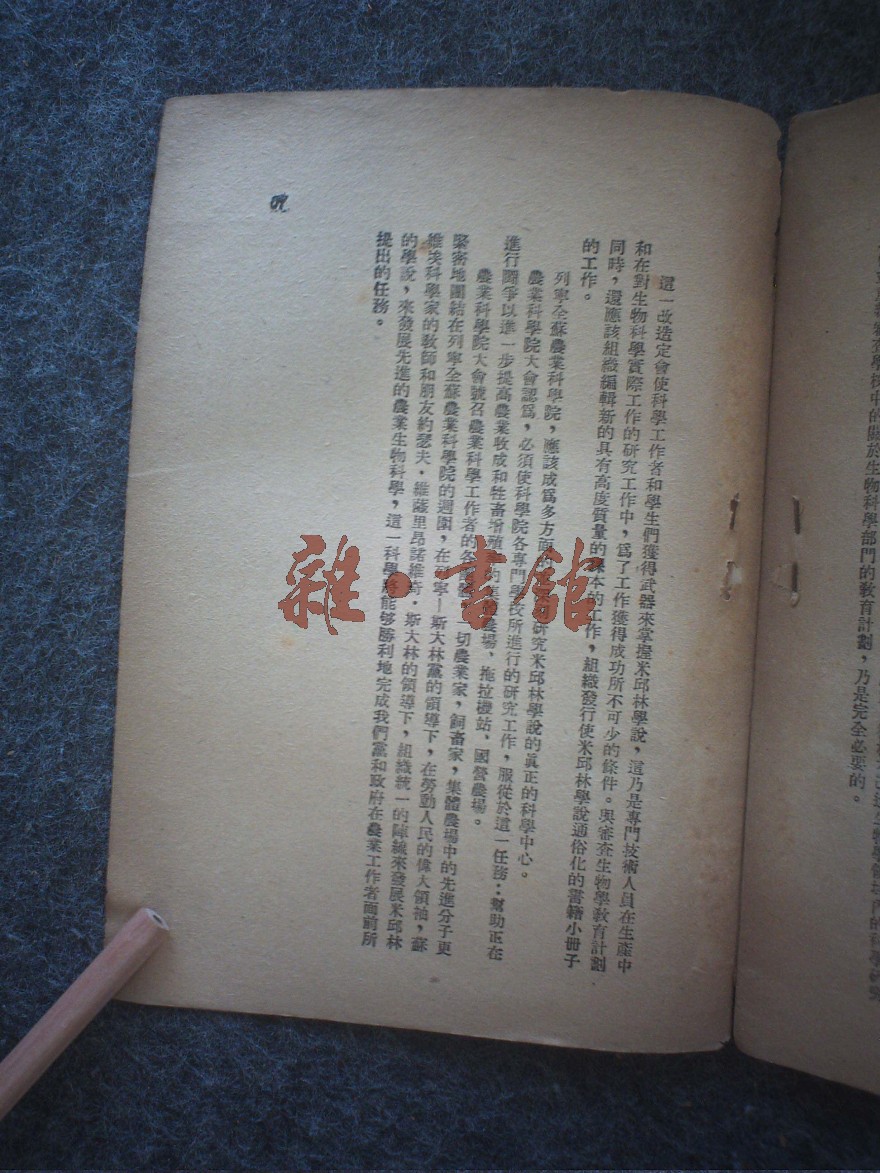 在學校中的關於生物科學部門的教育計劃，乃是完全必要的。
這一改造定會使科學工作者和學生們獲得武器來掌握米邱林學說，這乃是專門技術人員在生產中
和在對生物科學實際工作的研究工作中，爲了工作獲得成功所不可少的條件。與審查生物學教育計劃
同時，還應該組織編輯新的具有高度質量的課本的工作，組織發行使米邱林學說通俗化的書籍小冊子
的工作。
列寧全蘇農業科學院，應該成爲多方面的研究米邱林學說的眞正的科學中心。
農業科學院大會認爲，必須使科學院各專門學校所進行的研究工作，服從於這一任務：幫助正在
進行鬪爭以進一步提高農業收成和牲畜增殖的集體農場、拖拉機站、國營農場。
農業科學院大會號召農業科學工作者的各一切農業家，飼畜家，集體農場中的先進分子更
緊密地團結在列寧全蘇農業科學院的週圍，在列寧—斯大林黨的領導下，在勞動人民的偉大領袖，蘇
維埃科學家的教師和朋友約瑟夫·維薩里昂諾維奇·斯大林的領導下，組織統一的陣線來發展米邱林
的學說，來發展先進的農業生物科學，這一科學將能够勝利地完成我們黨和政府在農業工作者面前所
提出的任務。
雜·書館